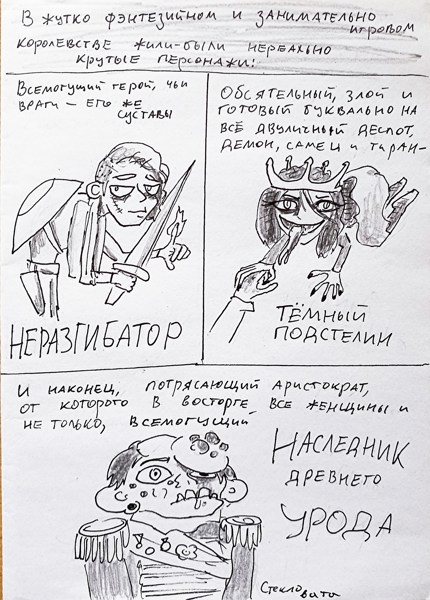 В жутко фэнтезийном и занимательно
игровом
королевстве жили-были нереально
крутые персонажи!
Всемогущий герой, чьи
враги – его же
суставы
НЕРАЗГИБАТОР
Обсятельный, злой и
готовый буквально на
всё двуличный деспот,
демон, самец и тиран–
ТЁМНЫЙ
ПОДСТЕЛИН
И наконец, потрясающий аристократ,
от которого в восторге все женщины и
не только, всемогущий
НАСЛЕДНИК
ДРЕВНЕГО
УРОДА
Стекло
вата